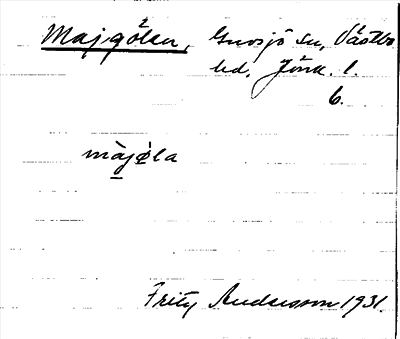 Majgölen, Gnosjö sn, Västbo
hd, Jönk. l.
6.
màjøla
Fritz Andersson 1931.